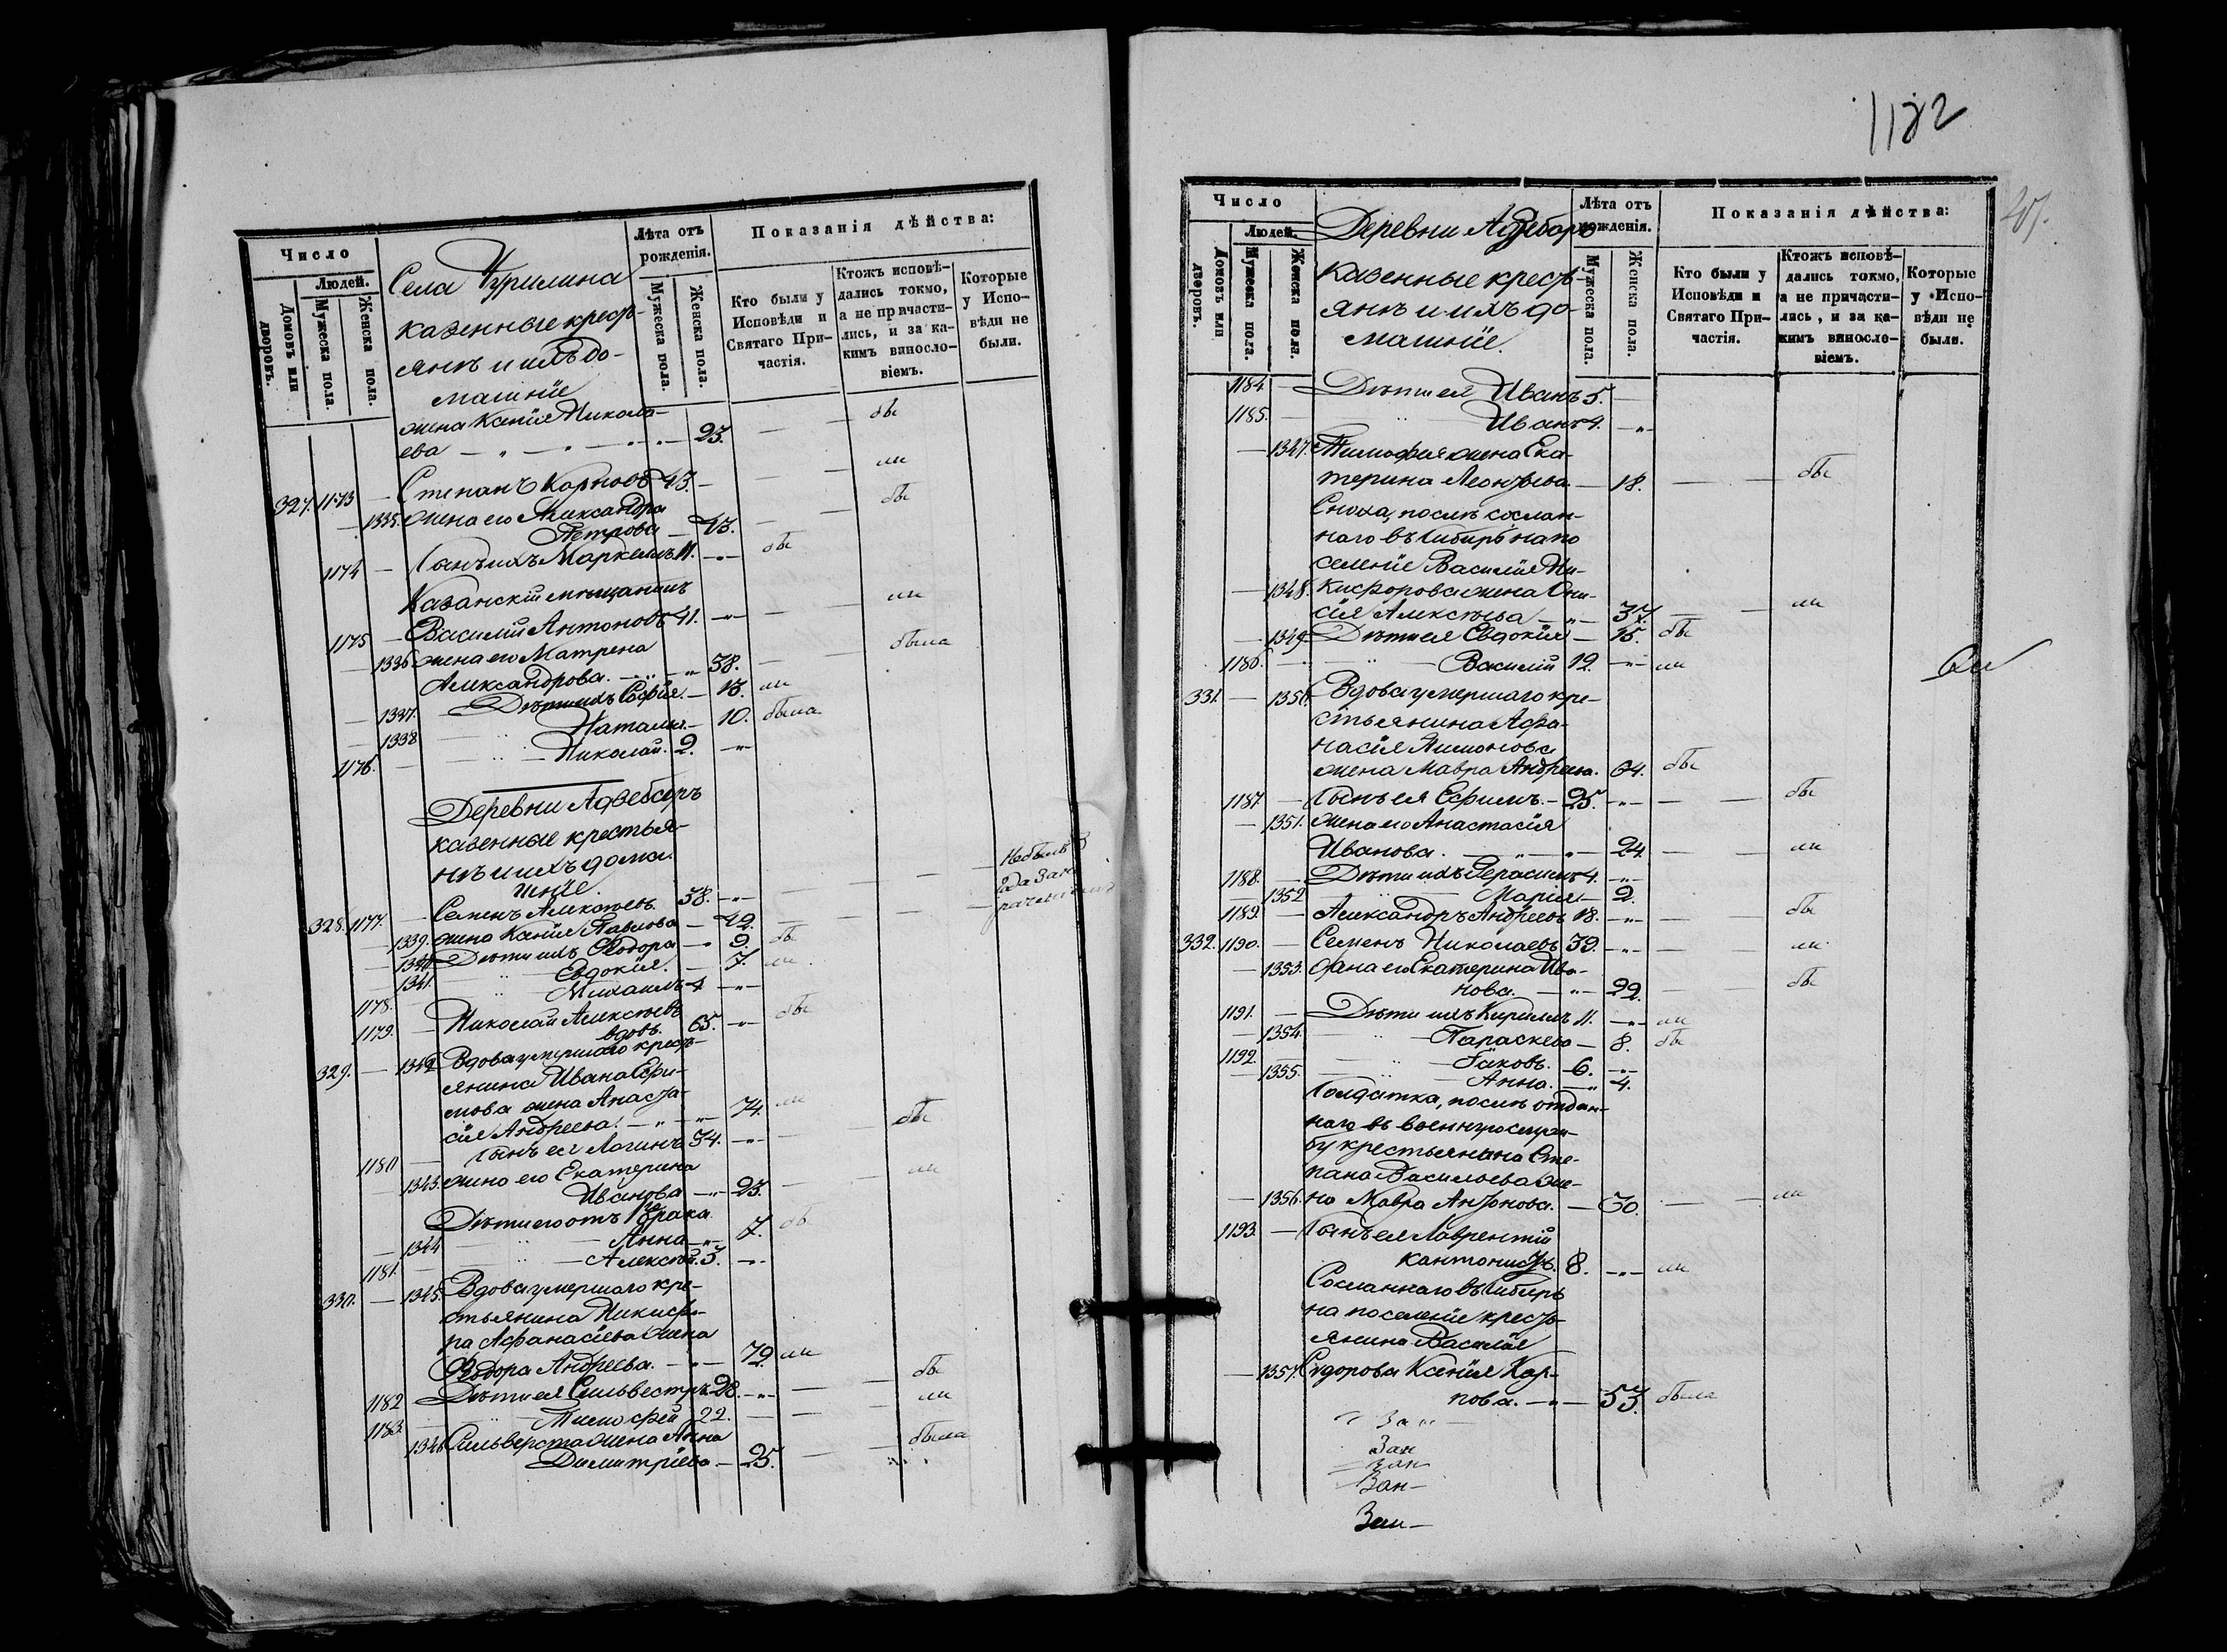 Число
Людей.
Домовъ или дворовъ.
Мужеска пола.
Женска пола.
Села Чурилина
казенные крест-
янъ и ихъ до-
машніе
Лѣта отъ рожденія.
Мужеска пола.
Женска пола.
Показанія дѣйства:
Кто были у Исповѣди и Святаго При-частія.
Ктожъ исповѣ-дались токмо, а не причасти-лись, и за ка-кимъ винослo-віемъ.
Которые у Испо-вѣди не были.
жена Ксенія Никола-
ева — 23. — — бы
327. 1173 — Степанъ Карповъ 43. — — — ли
— 1335. жена его Александра
Петрова — 43. — — бы
1174 — Сынъ ихъ Маркеллъ 11. — бы
Казанскій мѣщанинъ
1175 — Василій Антоновъ 41. — — ли
— 1336 жена его Матрена
Александрова. — 38. — — была
— 1337. Дѣти ихъ Софія — 13. ли
— 1338 Наталья — 10. была
1176. — Николай. 2. —
Деревни Адзебаръ
казенные крестья-
нъ и ихъ дома-
шніе.
328. 1177. — Семенъ Алексѣевъ. 38. — — — Небылъ 3
года за
— 1339. жена Ксенія Павлова — 42. — — —
— 1340 Дѣти ихъ Ѳеодора — 9. бы
— 1341. Евдокія. — 7. ли
1178. Михаилъ 4 —
1179. — Николай Алексѣевъ
вдовъ. 65. — бы
329. — 1342 Вдова умершаго крест-
янина Ивана Ефи-
мова жена Анаста-
сія Андреева. — 74. ли
1180 — Сынъ ея Логинъ 34. — — бы
— 1343. жена его Екатерина
Иванова — 23. — — ли
Дѣти его отъ 1го брака
— 1344 Анна — 7. бы
1181. — Алексѣй. 3. —
330. — 1345. Вдова умершаго кре-
стьянина Никифо-
ра Афанасіева жена
Ѳеодора Андреева. — 72 ли
1182 Дѣти ея Сильвестръ 28. — — бы
1183. Тимофей 22. — — ли
1346 Сильверста жена Анна
Димитріева — 25. — — была
1182
Число
Людей.
Домовъ или дворовъ.
Мужеска пола.
Женска пола.
Деревни Адзебаръ
казенные крестъ-
янъ и ихъ до-
машніе.
Лѣта отъ рожденія.
Мужеска пола.
Женска пола.
Показанія дѣйства:
Кто были у Исповѣди и Святаго При-частія.
Ктожъ исповѣ-дались токмо, а не причасти-лись, и за ка-кимъ виносло-віемъ.
Которые у Испо-вѣди не были.
1184. — Дѣти ея Иванъ 5. —
1185. — Иванъ 4. —
— 1347. Тимофея жена Ека-
терина Леонтьева — 18. — — бы
Сноха, послѣ сослан-
наго въ Сибирь на по
селеніе Василія Ни-
— 1348. кифорова жена Они-
сія Алексѣева — 37. — — ли
— 1349 Дѣти ея Евдокія — 15. бы
1186. — Василій 12. — ли
331. — 1350. Вдова умершаго кре-
стьянина Афа-
насія Тимонова
жена Мавра Андреева. 64. бы
1187 — Сынъ ея Ефимъ. — 25. — — — бы
— 1351. жена его Анастасія
Иванова. — 24. — — ли
1188. — Дѣти ихъ Герасимъ 4. —
— 1352 Марія — 2.
1189. — Александръ Андреевъ 18. — — — бы
332. 1190. — Семенъ Николаевъ 39. — — — ли
— 1353. жена его Екатерина Ива-
нова. — 22. — — бы
1191. — Дѣти ихъ Кириллъ 11. — ли
— 1354. Параскева — 8. бы
1192. Іаковъ. 6. —
— 1355. Анна. — 4.
Солдатка, послѣ отдан-
наго въ военную служ-
бу крестьянина Сте-
пана Васильева же-
— 1356. на Мавра Антонова. — 30. — — ли
1193. — Сынъ ея Лаврентій
кантонистъ. 8. — ли
Сосланнаго въ Сибирь
на поселеніе крестъ-
янина Василія
— 1357. Сидорова Ксенія Кар-
пова. — 53. была
Зан
Зан
Зан
Зан —
Зан —